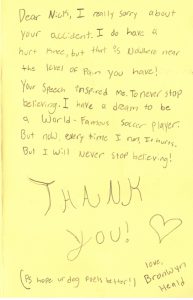 Dear Nick, I really sorry about
your accident. I do have a
hurt time, but that is Nowhere near
the level of Pain you have!
Your Speech inspired me. To never stop
believing. I have a dream to be
a World-Famous Soccer player.
But now every time I run, It hurts.
But I will never stop believing!
THANK
YOU!
love,
Bronwyn
Heald
(Ps hope ur dog feels better!)